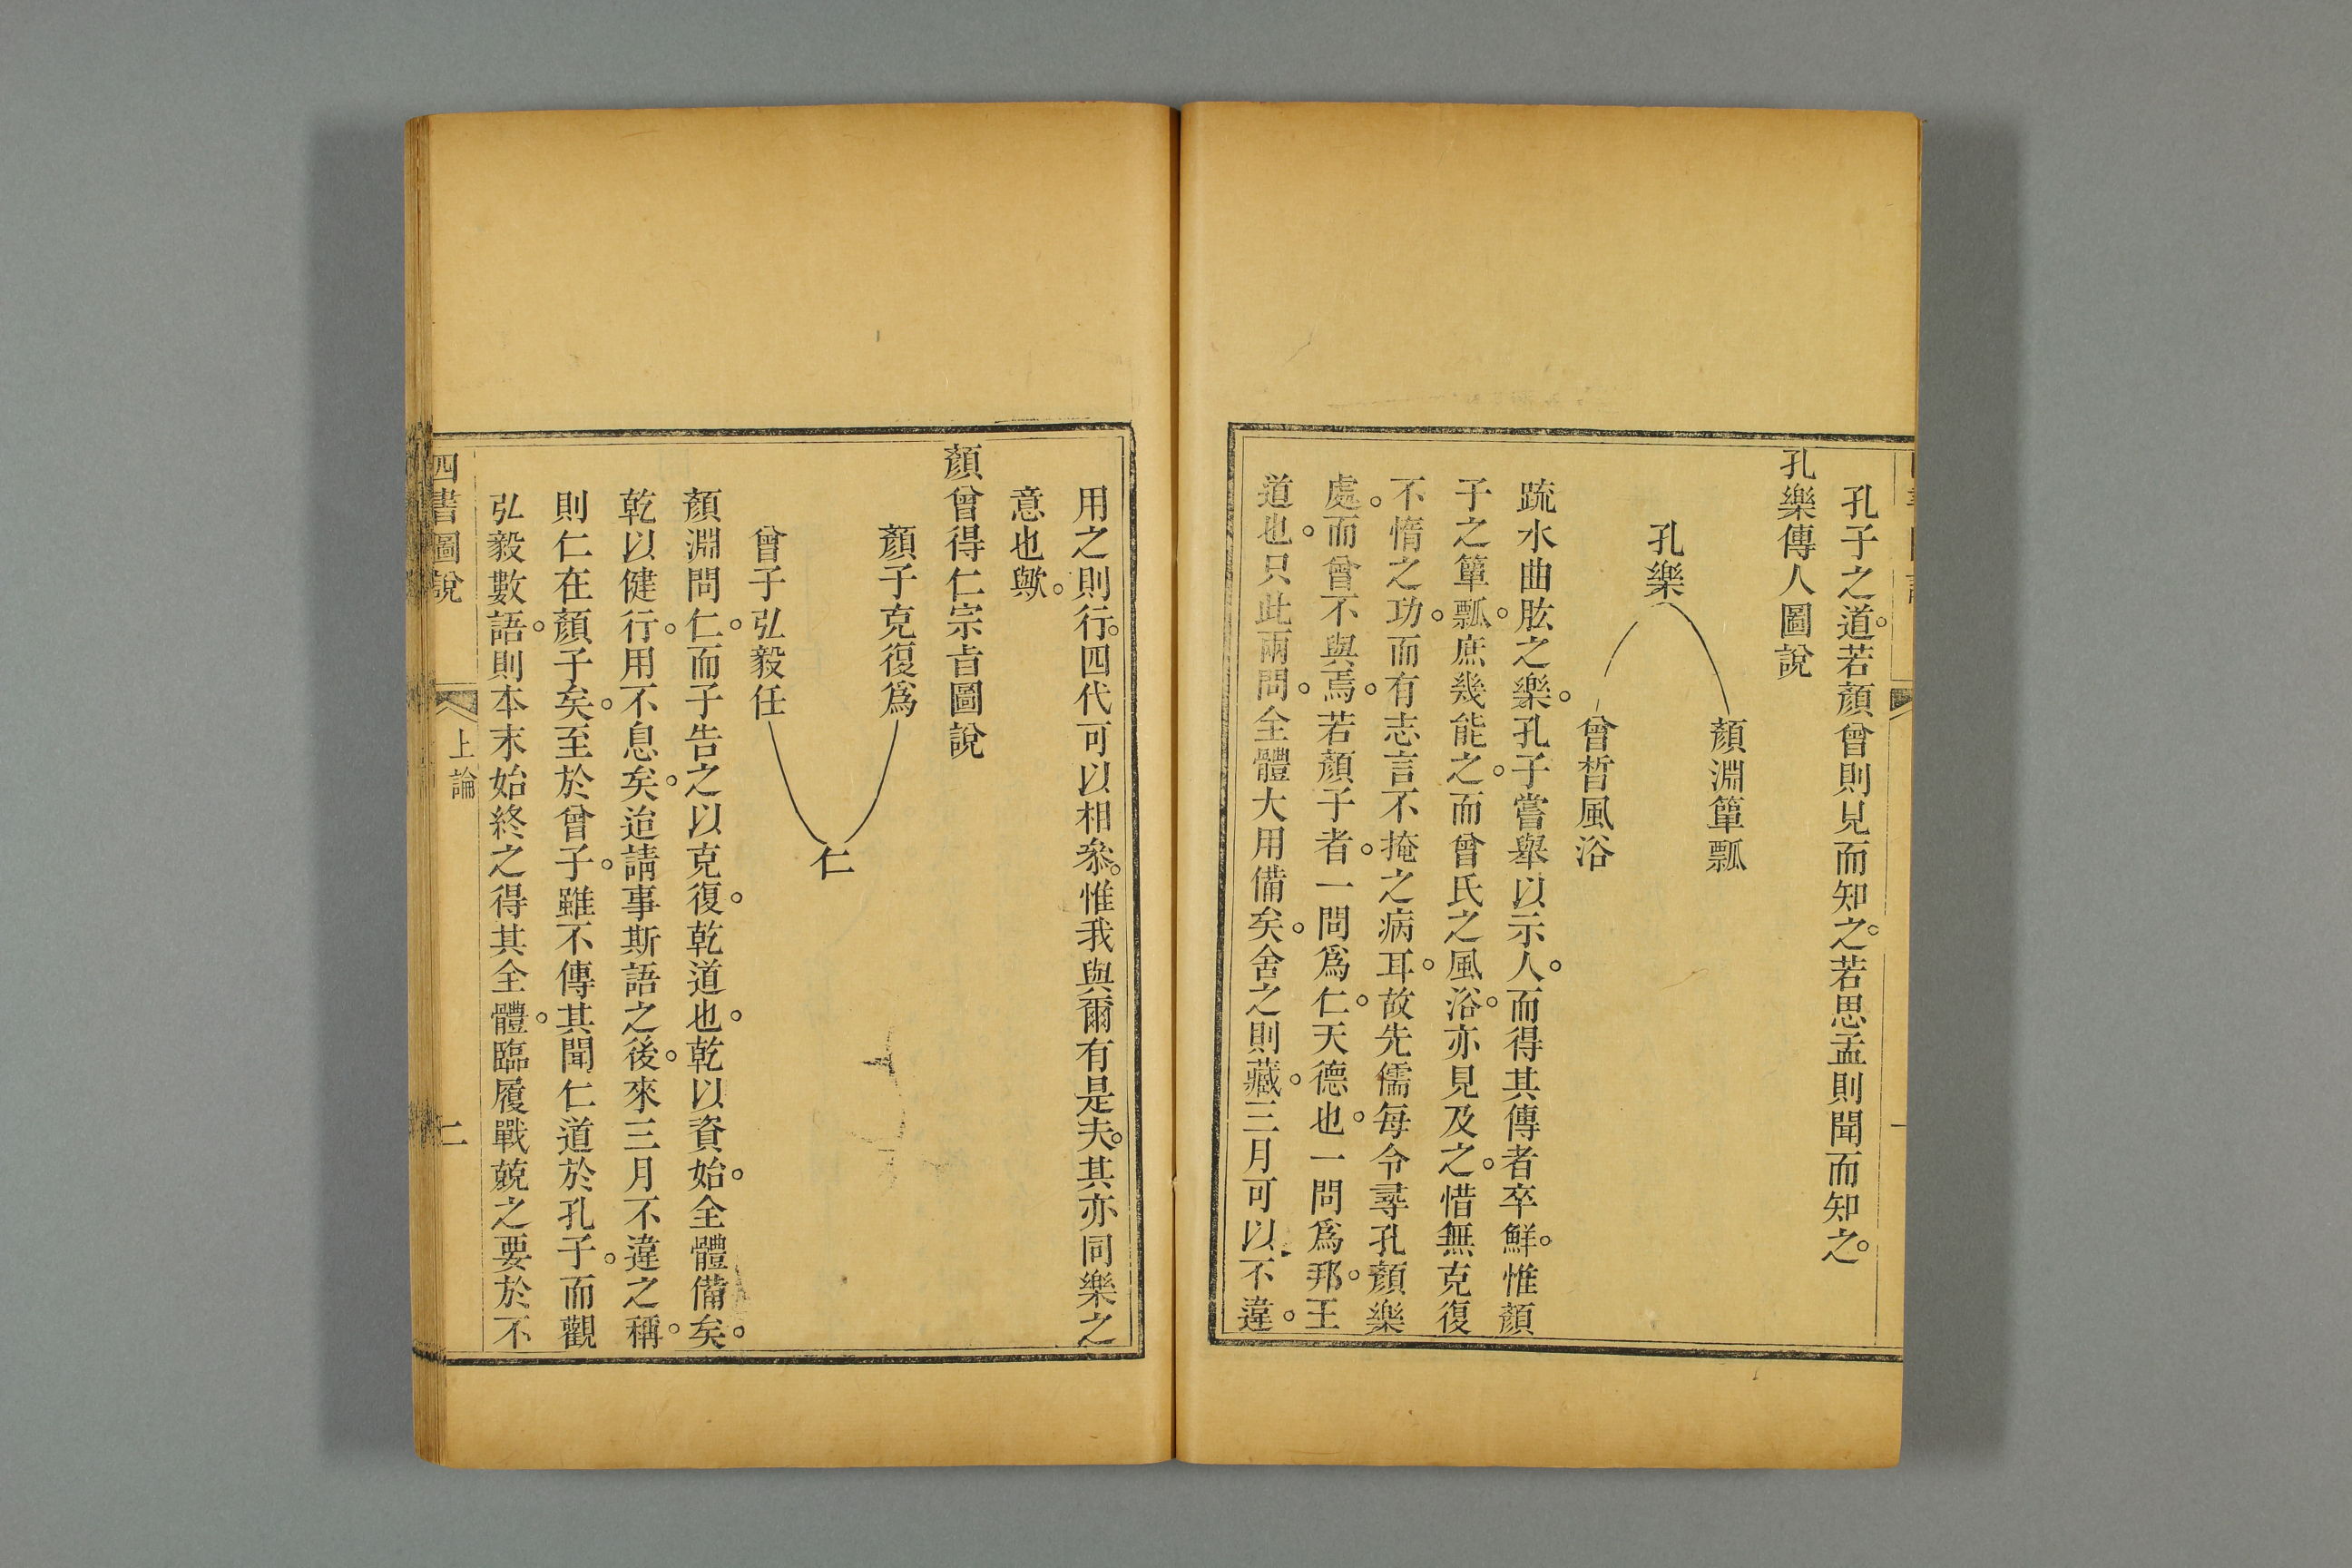 孔子之道。若顏曾則見而知之。若思孟則聞而知之。
孔樂傳人圖說
顏淵簞瓢
孔樂
曾晳風浴
䟽水曲肱之樂。孔子嘗舉以示人。而得其傳者卒鮮。惟顏
子之簞瓢。庶幾能之。而曾氏之風浴。亦見及之。惜無克復
不惰之功。而有志言不掩之病耳。故先儒每令尋孔顏樂
處。而曾不與焉。若顏子者。一問爲仁。天德也。一問爲邦。王
道也。只此兩問。全體大用備矣。舍之則藏。三月可以不違。
用之則行。四代可以相叅。惟我與爾有是夫。其亦同樂之
意也歟。
顏曾得仁宗㫖圖說
顏子克復爲
仁
曾子弘毅任
顏淵問仁。而子告之以克復。乾道也。乾以資始。全體備矣。
乾以健行。用不息矣。迨請事斯語之後。來三月不違之稱。
則仁在顏子矣。至於曾子。雖不傳其聞仁道於孔子。而觀
弘毅數語。則本末始終之得其全體。臨履戰兢之要於不
四書圖說
上論
二